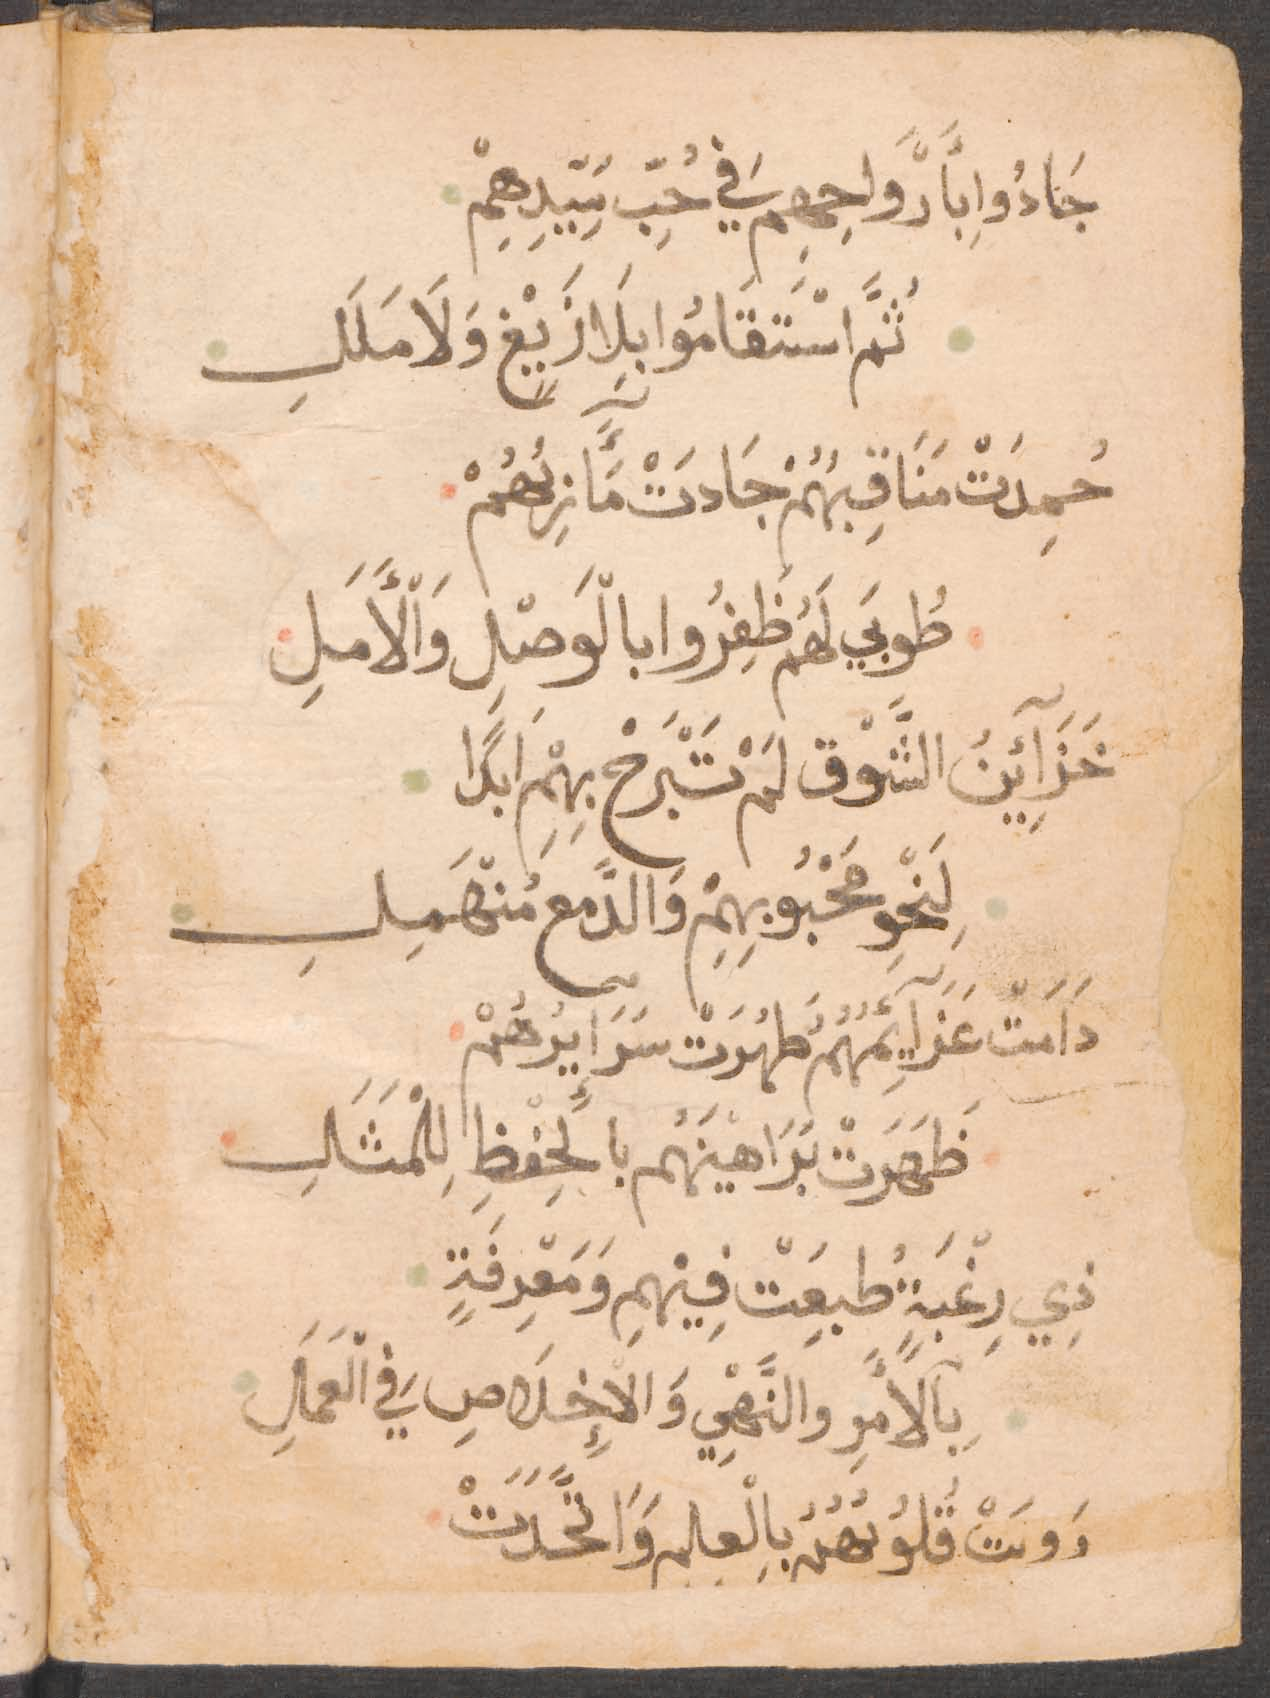 جَادُوا بِأَرْوَاحِهِم فِي حُبِّ سَيِّدِهِمْ
ثُمَّ اسْتَقَامُوا بِلَا زَيْغٍ وَلَا مَلَلِ
حُمِدَتْ مَنَاقِبُهُمْ جَادَتْ مَآزِرُهُمْ
طُوبَي لَهُم ظَفِرُوا بِالْوَصْلِ وَالْأَمَلِ
خَزَآئِنُ الشَّوْقِ لَمْ تَبْرَحْ بِهِمْ اَبَدًا
لِنَحْوِ مَحْبُوبِهِمْ وَالدَّمعِ مُنْهَمِلِ
دَامَتْ عَزَآئِمُهُمُ طَهُرَتْ سَرَايِرُهُمْ
ظَهَرَتْ بَرَاهِينُهُم بِالْحِفْظِ لِلْمَثَلِ
ذِي رِغْبَةٍ طُبِعَتْ فِيهِمِ وَمَعْرِفَةٍ
بِالْأَمْرِ والنَّهْيِ وَالْإِخْلَاصِ فِي الْعَمَلِ
رَوِيَتْ قُلُوبُهُمُ بِالْعِلْمِ وَاتَّحَدَتْ